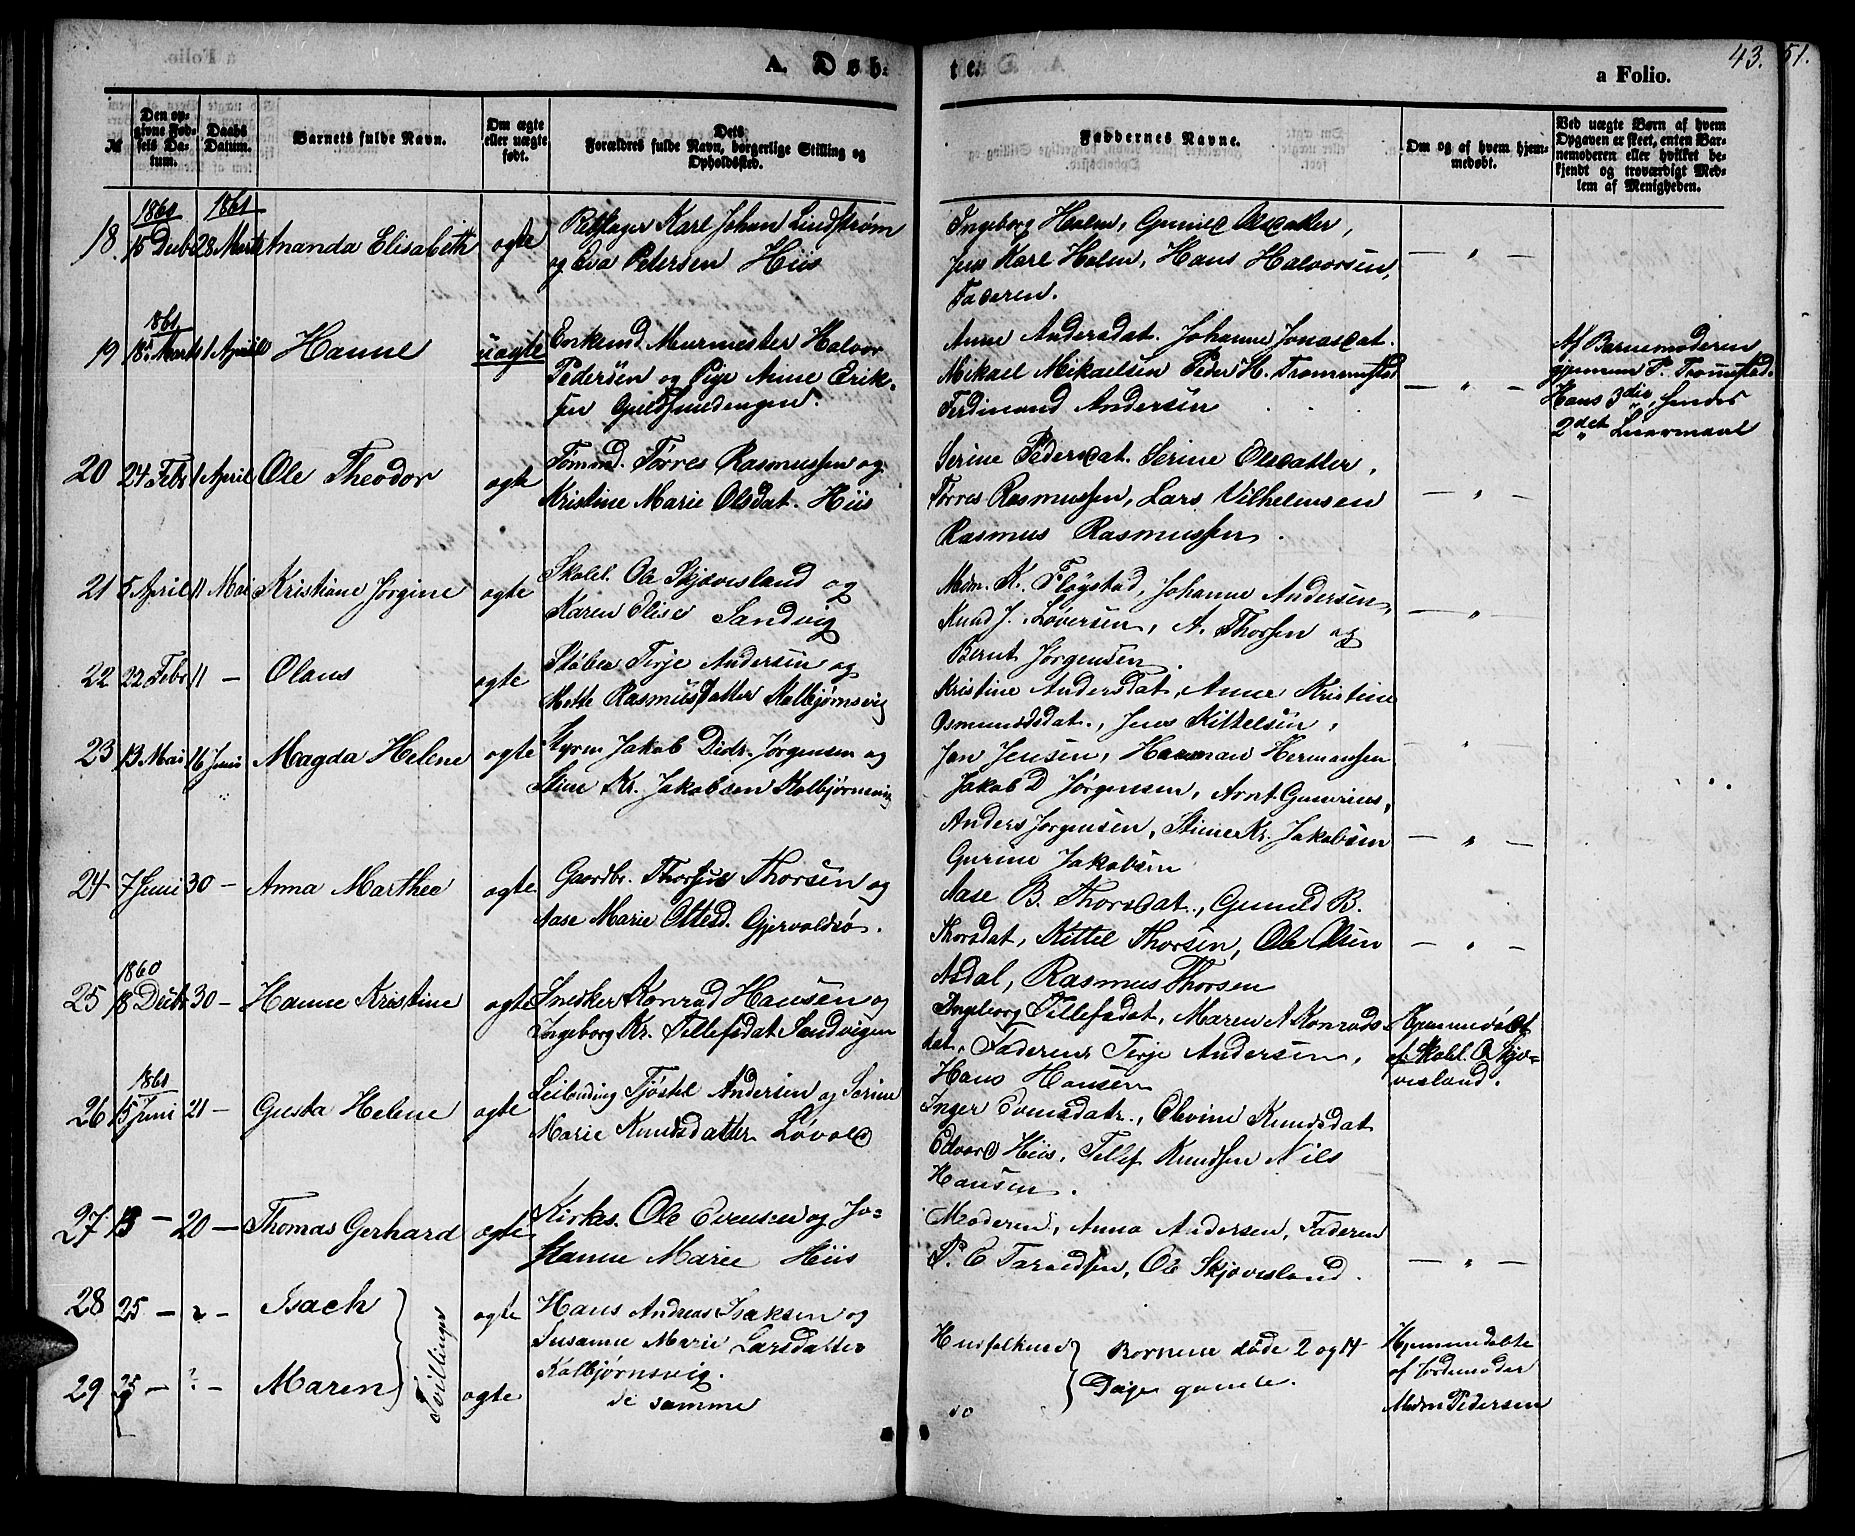 43. 51.
A. Døbte.
a Folio.
№
Den opgivne Fødsels Datum.
Daabs Datum.
Barnets fulde Navn.
Om ægte eller uægte født.
Dets Forældres fulde Navn, borgerlige Stilling og Opholdssted.
Faddernes Navne.
Om og af hvem hjemmedøbt.
Ved uægte Børn af hvem Opgaven er skeet, enten Barnemoderen eller hvilket bekjendt og troværdigt Medlem af Menigheden.
1860 1861
18. 15 Decb 28 Marts Amanda Elisabeth ægte
Karl Johan Lindstrøm
og Eva Petersen Hiis
Ingeborg Holm,
Jens Karl Holm, Hans Halvorsen,
Faderen.
— " —
1861
19 18 Marts 1 April Hanne uægte
Enkemd Murmester Halvor
Pedersen og Pige Anne Erik-
sen Guldsmedengen.
Anne Andersdat. Johanne Jonasdat.
Mikael Mikaelsen Peder H. Trommestad
Ferdinand Andersen
— " —
Af Barnemoderen
gjennem P. Tromstad.
Hans 3die, hendes
2det Leiermaal
20 24 Febr 1 April Ole Theodor ægte
Tømmd. Tørres Rasmussen og
Kristine Marie Olsdat. Hiis
Serine Pedersdat. Serine Olsdatter,
Tørres Rasmussen, Lars Vilhelmsen
Rasmus Rasmussen.
— " —
21 5 April 11 Mai Kristiane Jørgine ægte
Skolel. Ole Skjævesland og
Karen Elise Sandvig
Mdm. K. Fløystad, Johanne Andersen,
Knud J. Løversen, A. Thorsen og
Bernt Jørgensen.
— " —
22 22 Febr 11 — Olaus ægte
Støber Terje Andersen og
Mette Rasmusdatter Kolbjørnsvig
Kristine Andersdat, Anne Kristine
Osmundsdat., Jens Kittelsen,
Jan Jensen, Herman Hermansen
— " —
23 13 Mai 16 Juni Magda Helene ægte
Styrm Jakob Didr. Jørgensen og
Stine Kr. Jakobsen Kolbjørnsvig
Jakob D Jørgensen, Arnt Gunerius,
Anders Jørgensen, Stine Kr. Jakobsen
Gurine Jakobsen
— " —
24 7 Juni 30 — Anna Marthea ægte
Gaardbr. Thorsen og
Aase Marie Ottesd. Gjervoldsø.
Aase B. Thorsdat., Gunild B.
Thorsdat, Kittel Thorsen, Ole Olsen
Asdal, Rasmus Thorsen
— " —
1860
25 18 Decb 30 — Hanne Kristine ægte
Snedker Konrad Hansen og
Ingeborg Kr. Tellefsdat Sandvigen
Ingeborg Tellefsdat, Maren A Konrads
dat. Faderen Terje Andersen,
Hans Hansen
Hjemmedøbt
af Skolel. O Skjæ-
vesland.
1861
26 5 Juni 21 — Gusta Helene ægte
Leilending Tjøstel Andersen og Serine
Marie Knudsdatter Løvold
Inger Evensdatr., Olevine Knudsdat
Edvard Hiis, Tellef Knudsen Nils
Hansen.
27 13 — 20 — Thomas Gerhard ægte
Kirkes. Ole Evensen og Jo-
hanne Marie Hiis
Moderen, Anna Andersen, Faderen
P. C Taraldsen, Ole Skjævesland.
— " —
28 25 — ? — Isach ægte
Hans Andreas Isaksen og
Susanne Marie Larsdatter
Kolbjørnsvig.
Tvillinger
Husfolkene
Børnene døde 2 og 14
Dage gamle.
Hjemmedøbte
af Jordemoder
Mdm Pedersen
29 25 — ? — Maren ægte
de samme
do